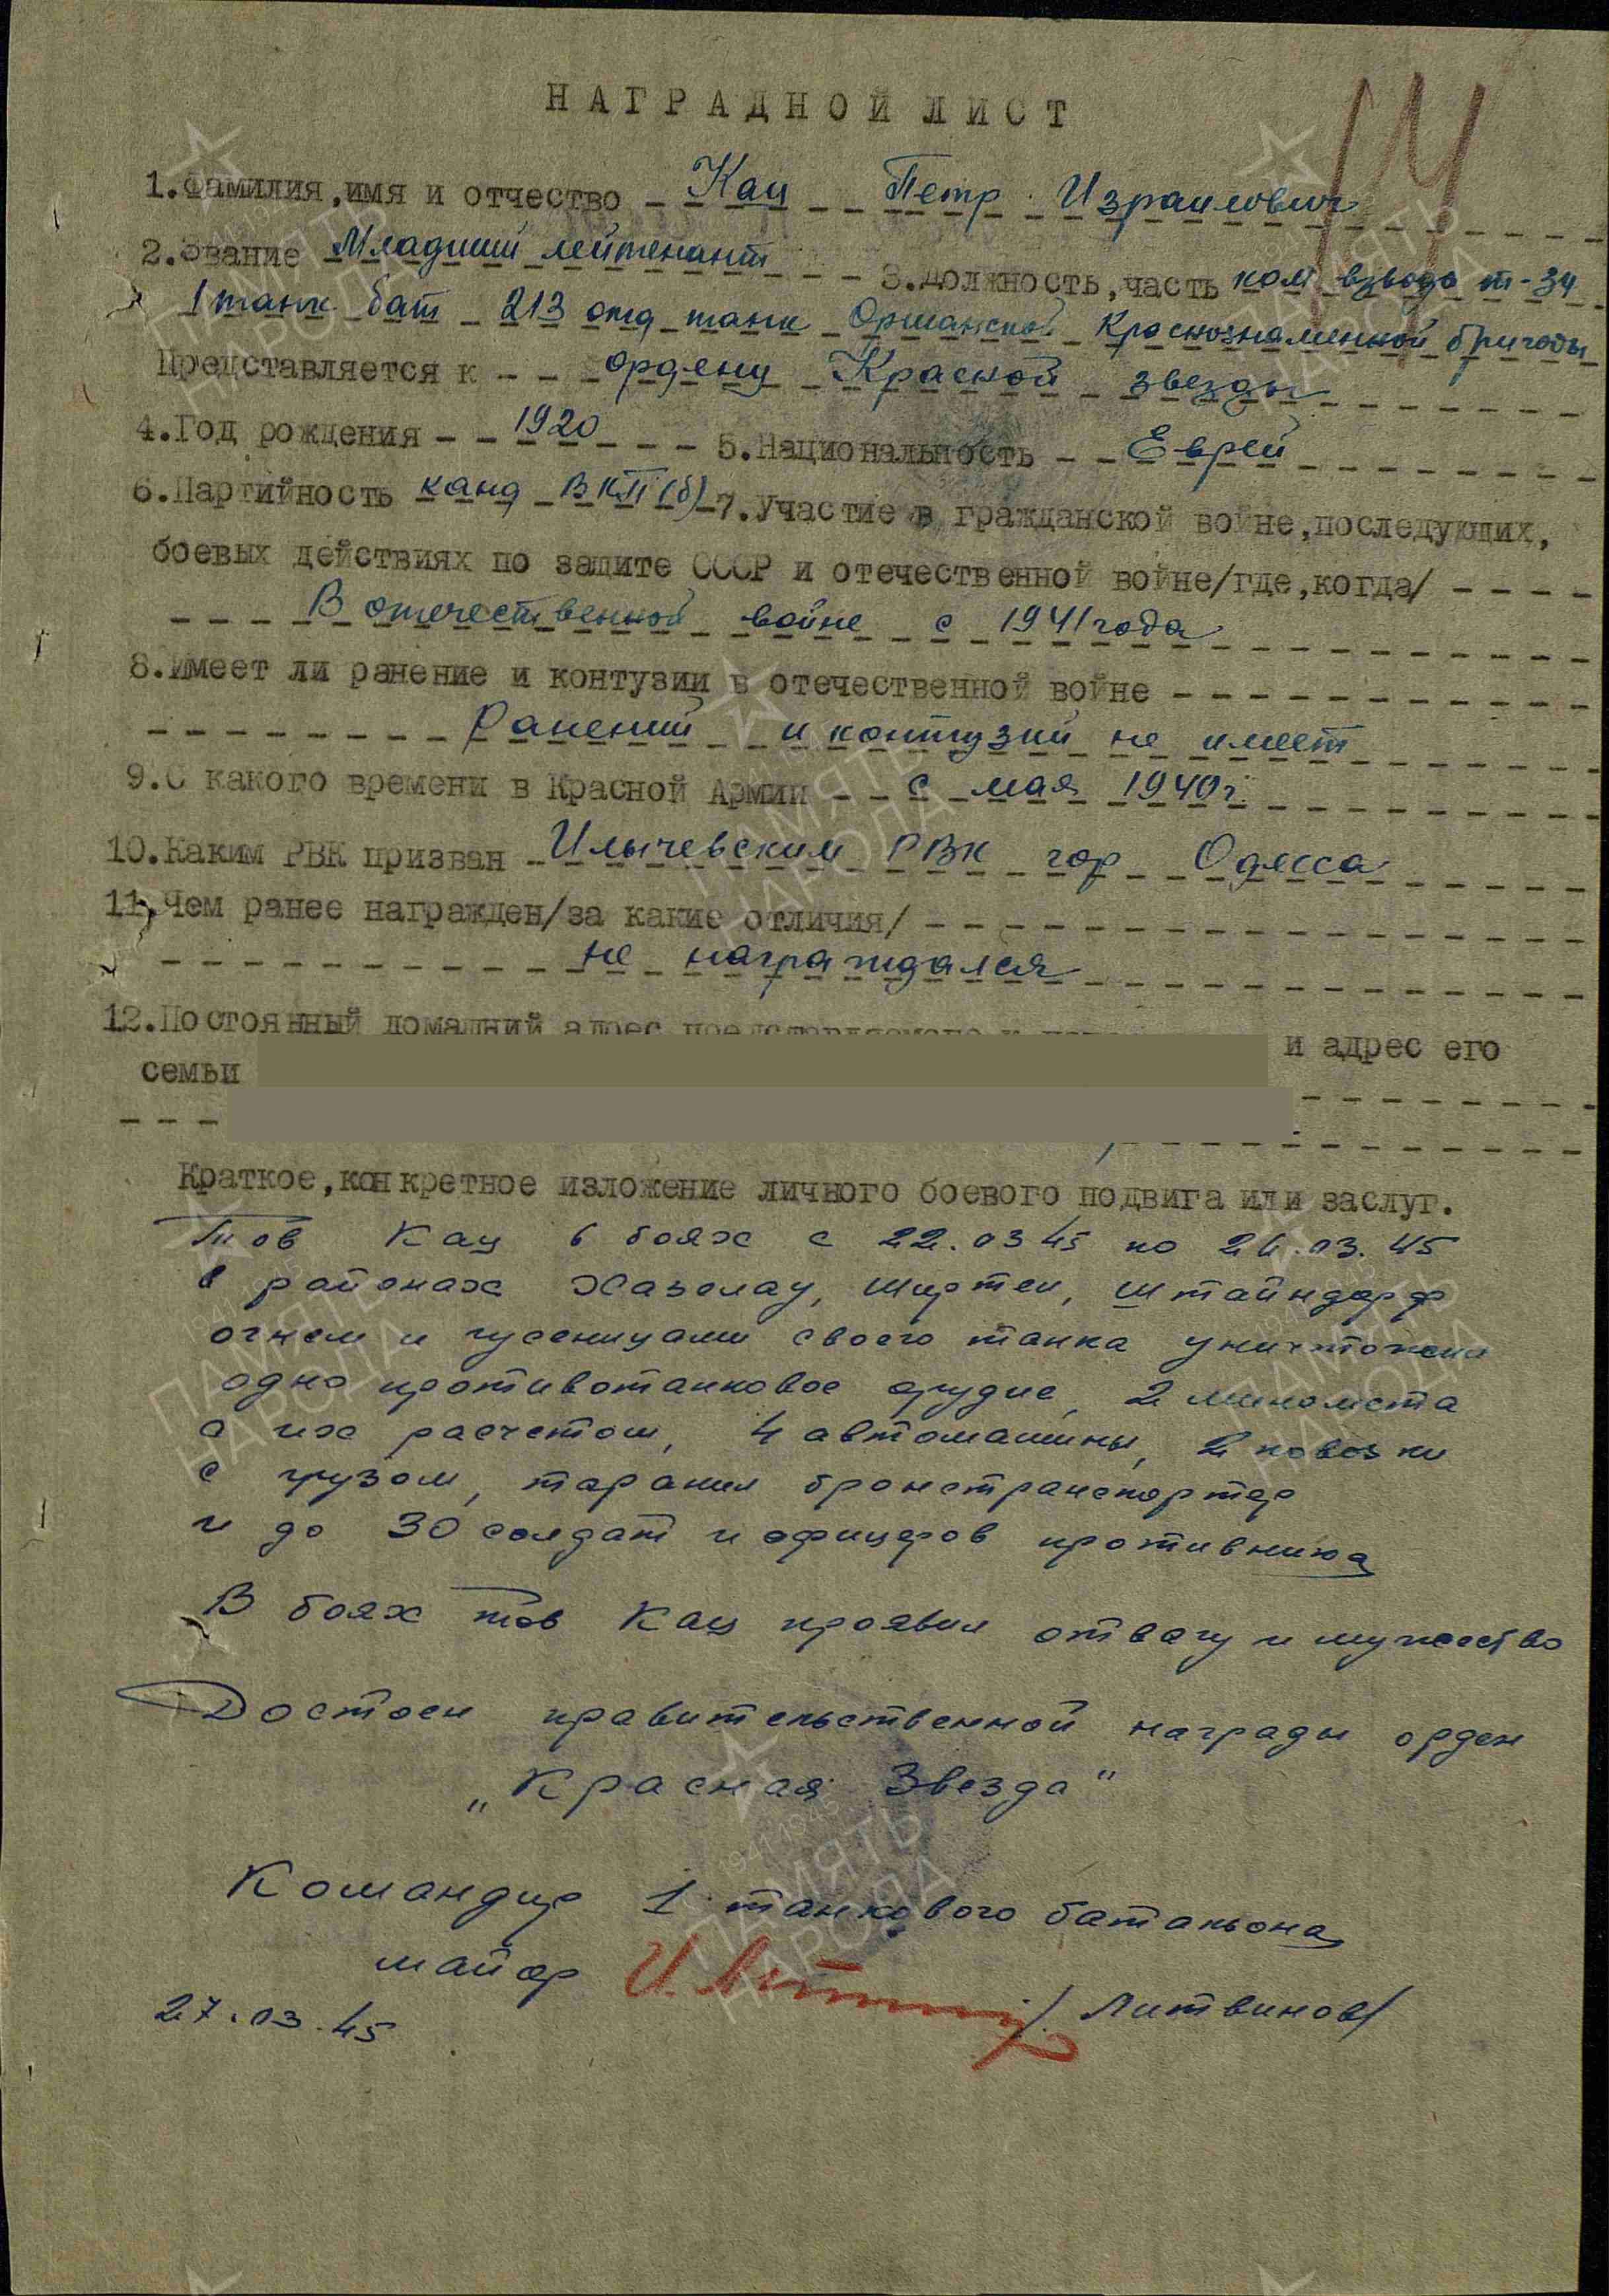 14
НАГРАДНОЙ ЛИСТ
1.Фамилия,имя и отчество Кац Петр Израилович
2.Звание Младший лейтенант 3.Должность,часть ком взвода т-34
1 танк бат 213 отд танк Оршанской Краснознаменной бригады
Представляется к ордену Красной звезды
4.Год рождения 1920 5.Национальность Еврей
6.Партийность канд ВКП(б) 7.Участие в гражданской войне,последующих,
боевых действиях по защите СССР и отечественной войне/где,когда/
В отечественной войне с 1941 года
8.Имеет ли ранение и контузии в отечественной войне
Ранений и контузий не имеет
9.С какого времени в Красной Армии с мая 1940г.
10.Каким РВК призван Илычевским РВК гор Одесса
11.Чем ранее награжден/за какие отличия/
не награждался
12.Постоянный домашний адрес представляемого к и адрес его
семьи
Краткое,конкретное изложение личного боевого подвига или заслуг.
Тов Кац в боях с 22.03 45 по 26.03.45
в районах Хазелау, Ширтен, Штайндорф
огнем и гусеницами своего танка уничтожил
одно противотанковое орудие, 2 миномета
с их расчетом, 4 автомашины, 2 повозки
с грузом, таранил бронетранспортер
и до 30 солдат и офицеров противника
В боях тов Кац проявил отвагу и мужество
Достоен правительственной награды орден
„Красная Звезда"
Командир 1 танкового батальона
майор /Литвинов/
27.03.45
ПАМЯТЬ
НАРОДА
1941 1945